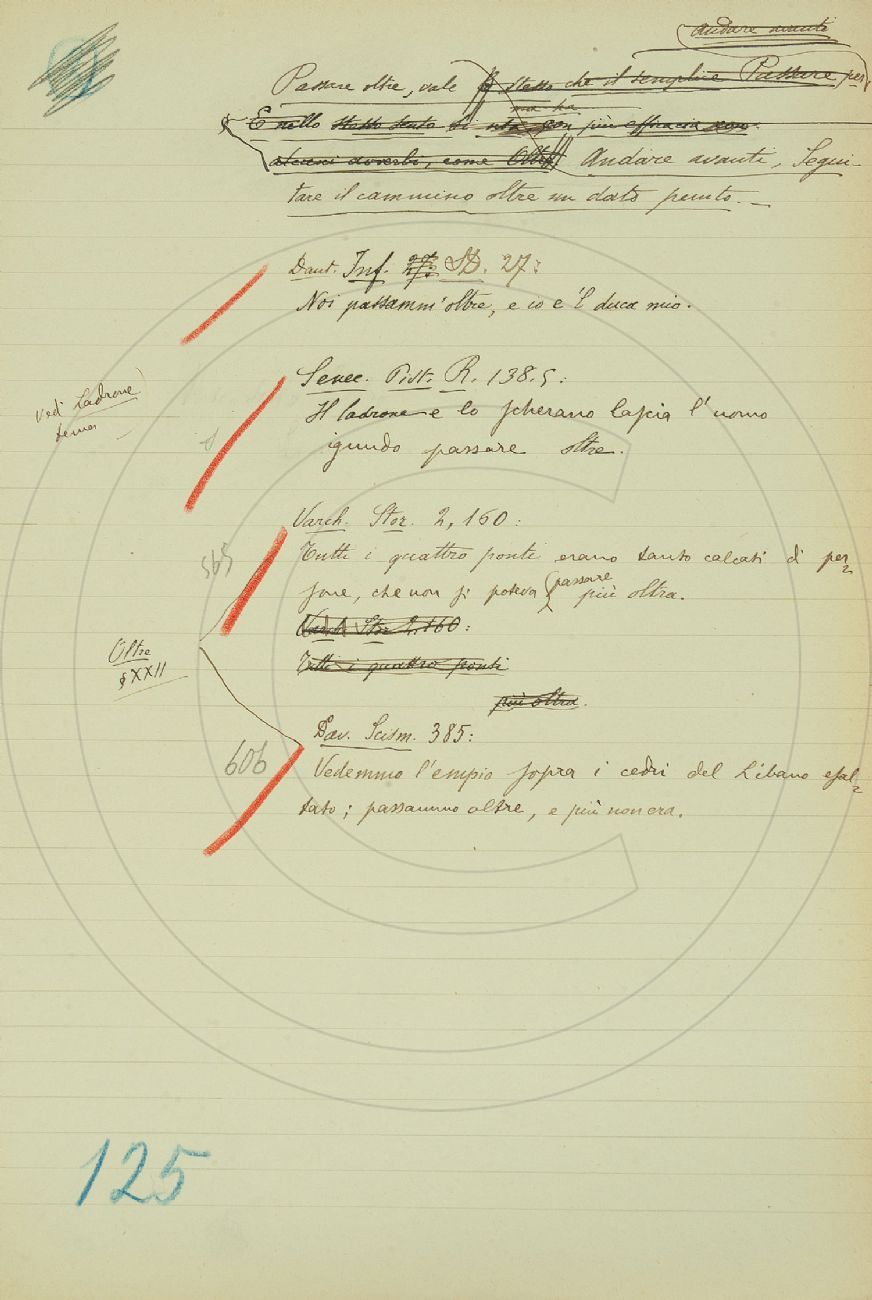 Andare avanti
Passare oltre, vale lo stesso che il semplice Passare per
ma ha
E nello stesso senso si usa con più efficacia con
alcuni avverbi, come Oltre Andare avanti, Segui-
tare il cammino oltre un dato punto. —
Dant. Inf. 27:
Noi passamm' oltre, e io e 'l duca mio.
Senec. Pist. R. 138.5:
Il ladrone e lo scherano lascia l'uomo
gnudo passare oltre.
Vedi Ladrone
tema
Varch. Stor. 2, 160:
Tutti i quattro ponti erano tanto calcati di per-
sone, che non si poteva passare più oltra.
565
Varch. Stor. 2. 160:
Tutti i quattro ponti
più oltra.
Oltre
§ XXII
Dav. Scism. 385:
606
Vedemmo l'empio sopra i cedri del Libano esal-
tato; passammo oltre, e più non era.
125